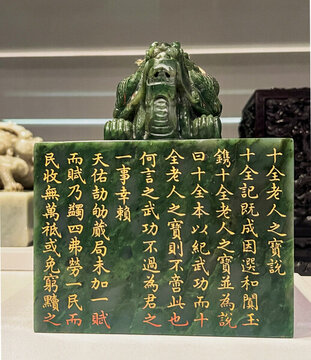 十全老人之寶說
十全記既成因選和闐玉
鐫十全老人之寶並為說
曰十全本以紀武功而十
全老人之寶則不啻此也
何言之武功不過為君之
一事幸賴
天佑劼劬蕆局未加一賦
而賦乃蠲四弗勞一民而
民收無萬祗或免窮黷之